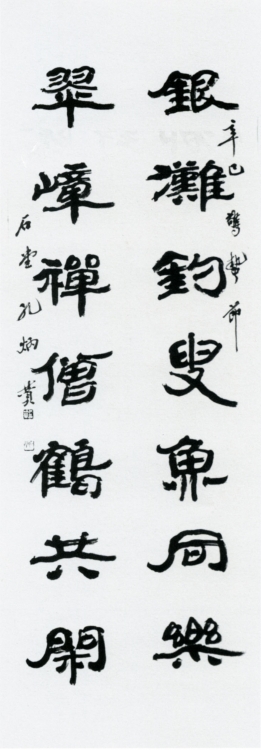 銀灘釣叟魚同樂
辛巳驚蟄節
翠嶂禪僧鶴共閑
石堂孔炳